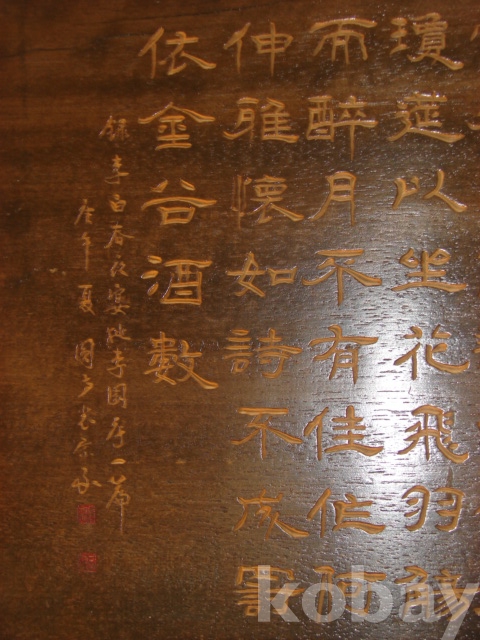 瓊筵以坐花飛羽觴
而醉月不有佳作何
伸雅懷如詩不成罰
依金谷酒數
錄李白春夜宴桃李園序一篇
庚午夏
kobay